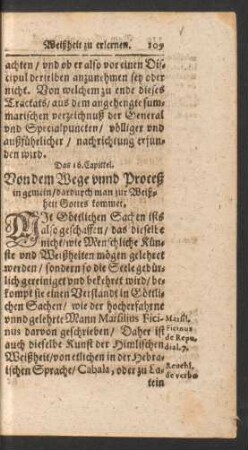 Weißheit zu erlernen. 109
achten / vnd ob er also vor einen Di-
scipul derselben anzunehmen sey oder
nicht. Von welchem zu ende dieses
Tractats / aus dem angehengte sum-
marischen verzeichnuß der General
vnd Specialpuncten / völliger vnd
außführlicher / nachrichtung erfun-
den wird.
Das 16. Capittel.
Von dem Wege vnnd Proceß
in gemein / dardurch man zur Weiß-
heit Gottes kommet.
MIt Göttlichen Sachen ists
also geschaffen / das dieselbe
nicht / wie Menschliche Kün-
ste vnd Weißheiten mögen gelehret
werden / sondern so die Seele gebür-
lich gereiniget vnd bekehret wird / be-
kompt sie einen Verstand in Göttli-
chen Sachen / wie der hocherfahrne
vnnd gelehrte Mann Marsilius Fici-
nus darvon geschrieben / Daher ist
auch dieselbe Kunst der Himlischen
Weißheit / von etlichen in der Hebra-
ischen Sprache / Cabala, oder zu La-
tein
Marsil.
Ficinus
de Repu.
dial. 7.
Reuchl.
de verbo